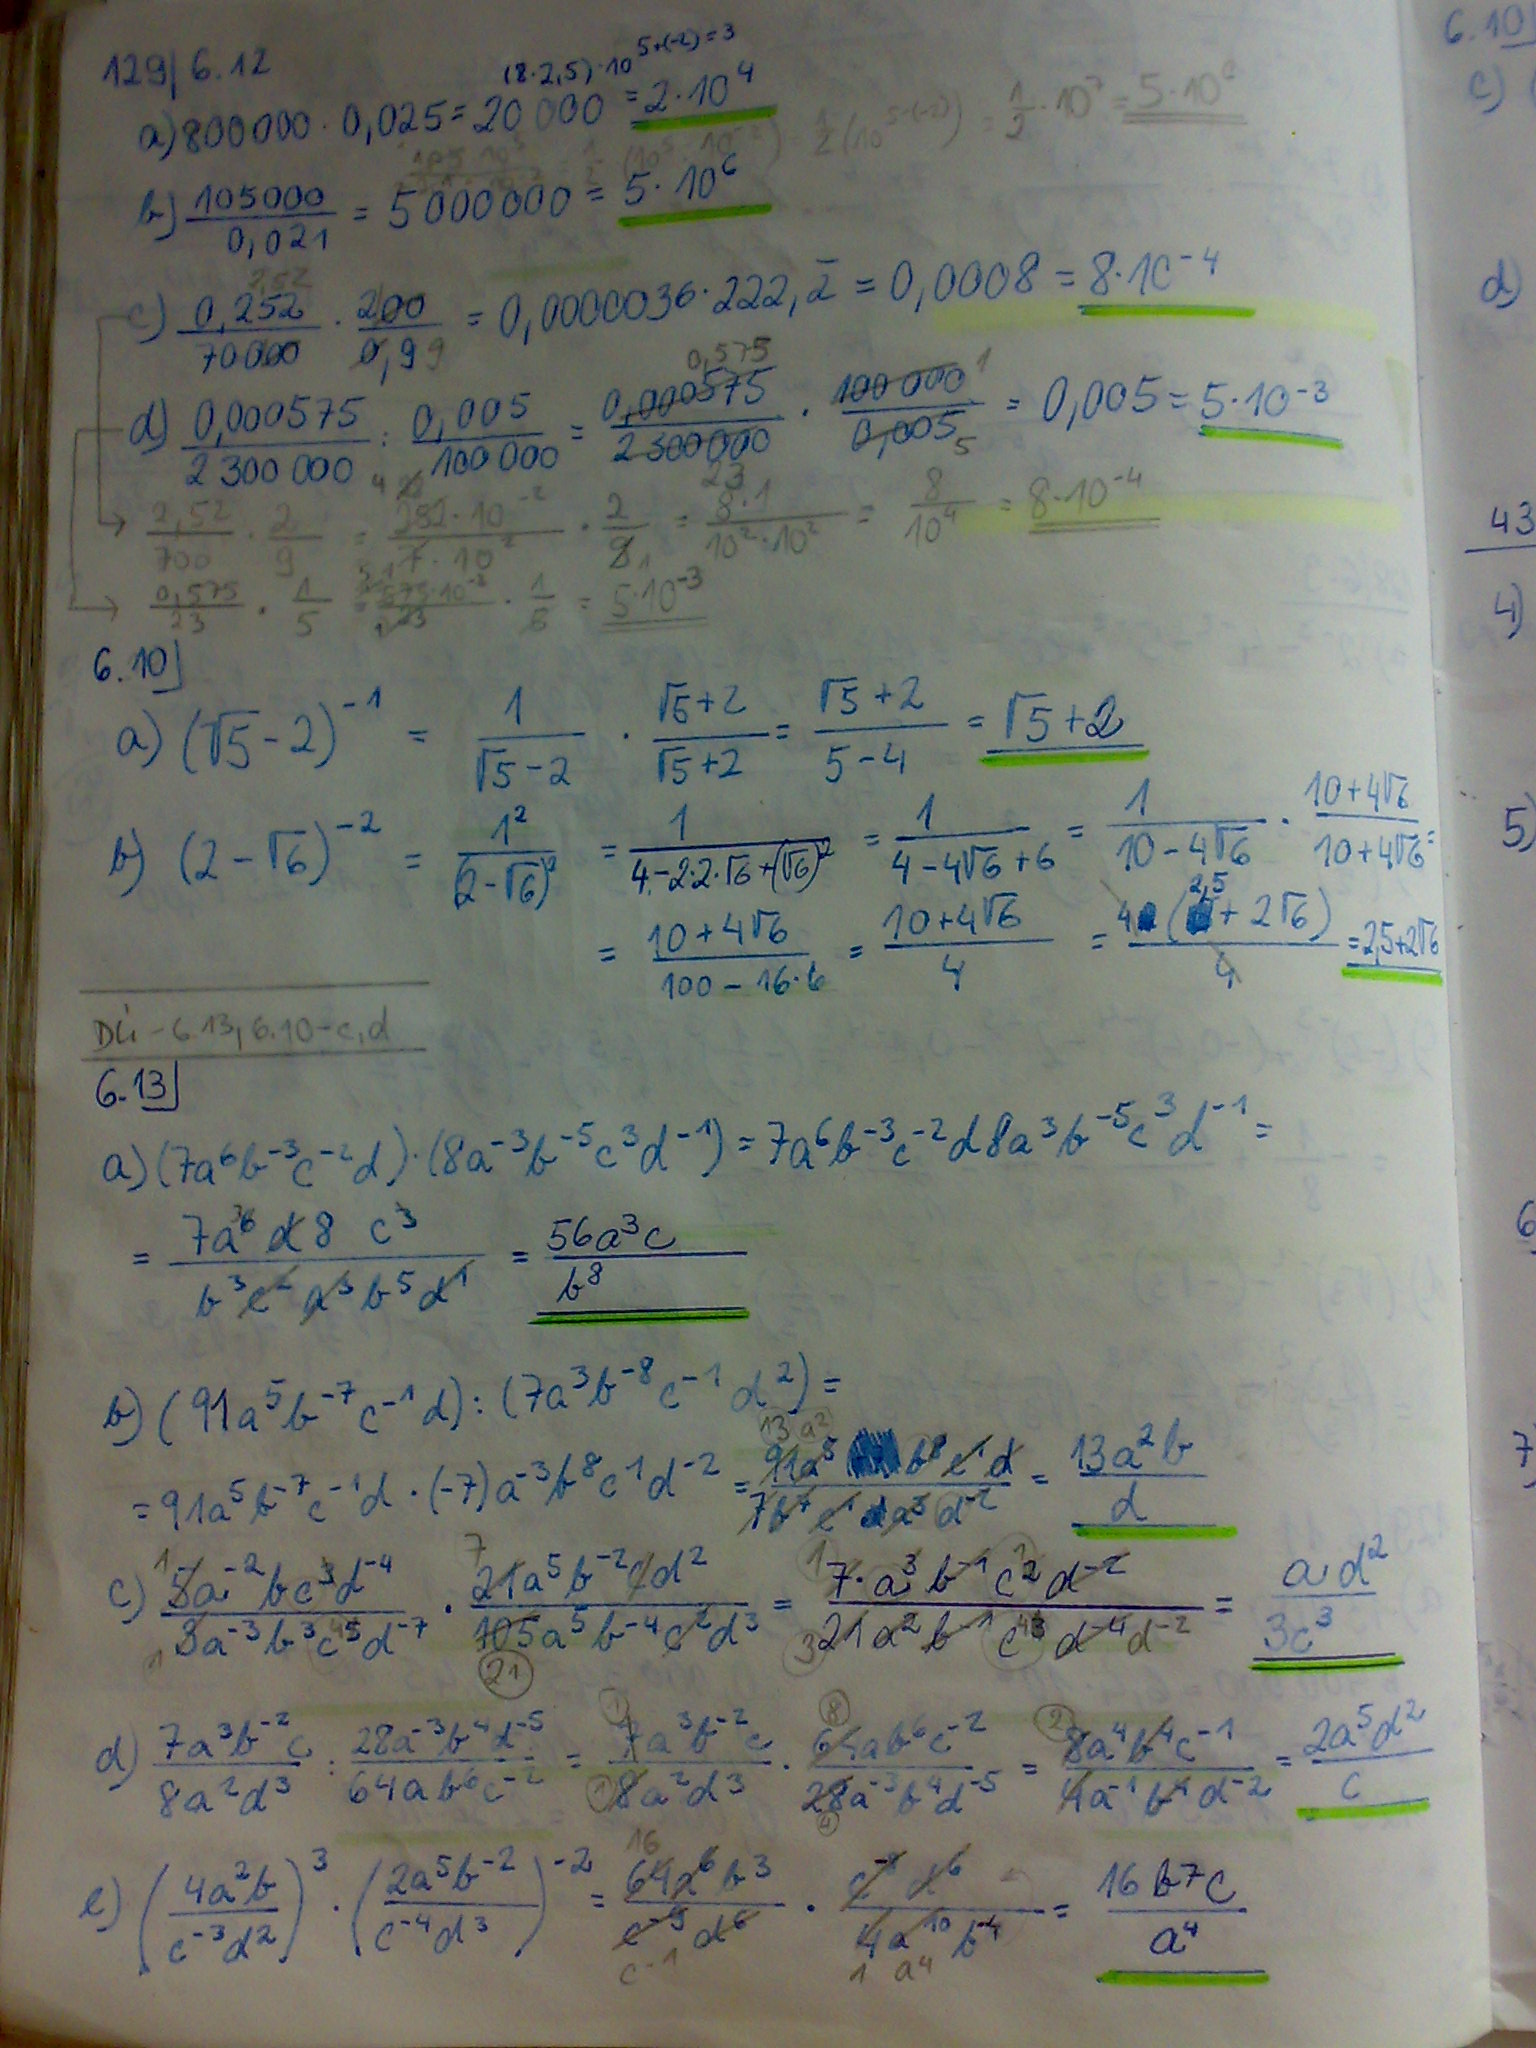 129| 6.12
(8·2,5)·10^5+(-2)=3
a) 800000 · 0,025 = 20 000 = 2·10^4
1/2 (10^5-(-2)) = 1/2 · 10^7 = 5·10^6
b) 105000/0,021 = 5000000 = 5·10^6
2,52
c) 0,252/70000 · 200/0,9 9 = 0,0000036 · 222,2̄ = 0,0008 = 8·10^-4
0,575 1
d) 0,000575/2 300 000 : 0,005/100 000 = 0,000575/2300000 · 100 000/0,005 = 0,005 = 5·10^-3
23 5
2,52/700 · 2/9 = 252·10^-2/7·10^2 · 2/9 = 8·1/10^2·10^2 = 8/10^4 = 8·10^-4
0,575/23 · 1/5 = 575·10^-3/23 · 1/5 = 5·10^-3
6.10⌋
a) (√5-2)^-1 = 1/√5-2 · √5+2/√5+2 = √5+2/5-4 = √5+2
b) (2-√6)^-2 = 1^2/(2-√6)^2 = 1/4-2·2·√6+(√6)^2 = 1/4-4√6+6 = 1/10-4√6 · 10+4√6/10+4√6 =
= 10+4√6/100-16·6 = 10+4√6/4 = 4(2,5+2√6)/4 = 2,5+2√6
DÚ - 6.13, 6.10 - c, d
6.13⌋
a) (7a^6b^-3c^-2d)·(8a^-3b^-5c^3d^-1) = 7a^6b^-3c^-2d8a^3b^-5c^3d^-1 =
= 7a^6 d 8 c^3/b^3c^2 a^3 b^5 d^1 = 56a^3c/b^8
b) (91a^5b^-7c^-1d) : (7a^3b^-8c^-1d^2) =
13 a^2
= 91a^5b^-7c^-1d · (-7)a^-3b^8c^1d^-2 = 91a^5 b^8 c^1 d/7b^7 c^1 d a^3 d^-2 = 13a^2b/d
c) 5a^-2bc^3d^-4/3a^-3b^3c^5d^-7 · 21a^5b^-2cd^2/105a^5b^-4c^2d^3 = 7·a^3b^-1c^2d^-2/21a^2b^-1c^43d^-4d^-2 = ad^2/3c^3
1 7 1 21 3
d) 7a^3b^-2c/8a^2d^3 : 28a^-3b^4d^-5/64ab^6c^-2 = 7a^3b^-2c/8a^2d^3 · 64ab^6c^-2/28a^-3b^4d^-5 = 8a^4b^4c^-1/4a^-1b^4d^-2 = 2a^5d^2/c
1 8 2 1 4
16
e) (4a^2b/c^-3d^2)^3 · (2a^5b^-2/c^-4d^3)^-2 = 64a^6b^3/c^-9d^6 · c^-8 d^6/4a^10b^-4 = 16b^7c/a^4
c^-1 1 a^4
6.10
c) (
d)
43
4)
5)
6
7)